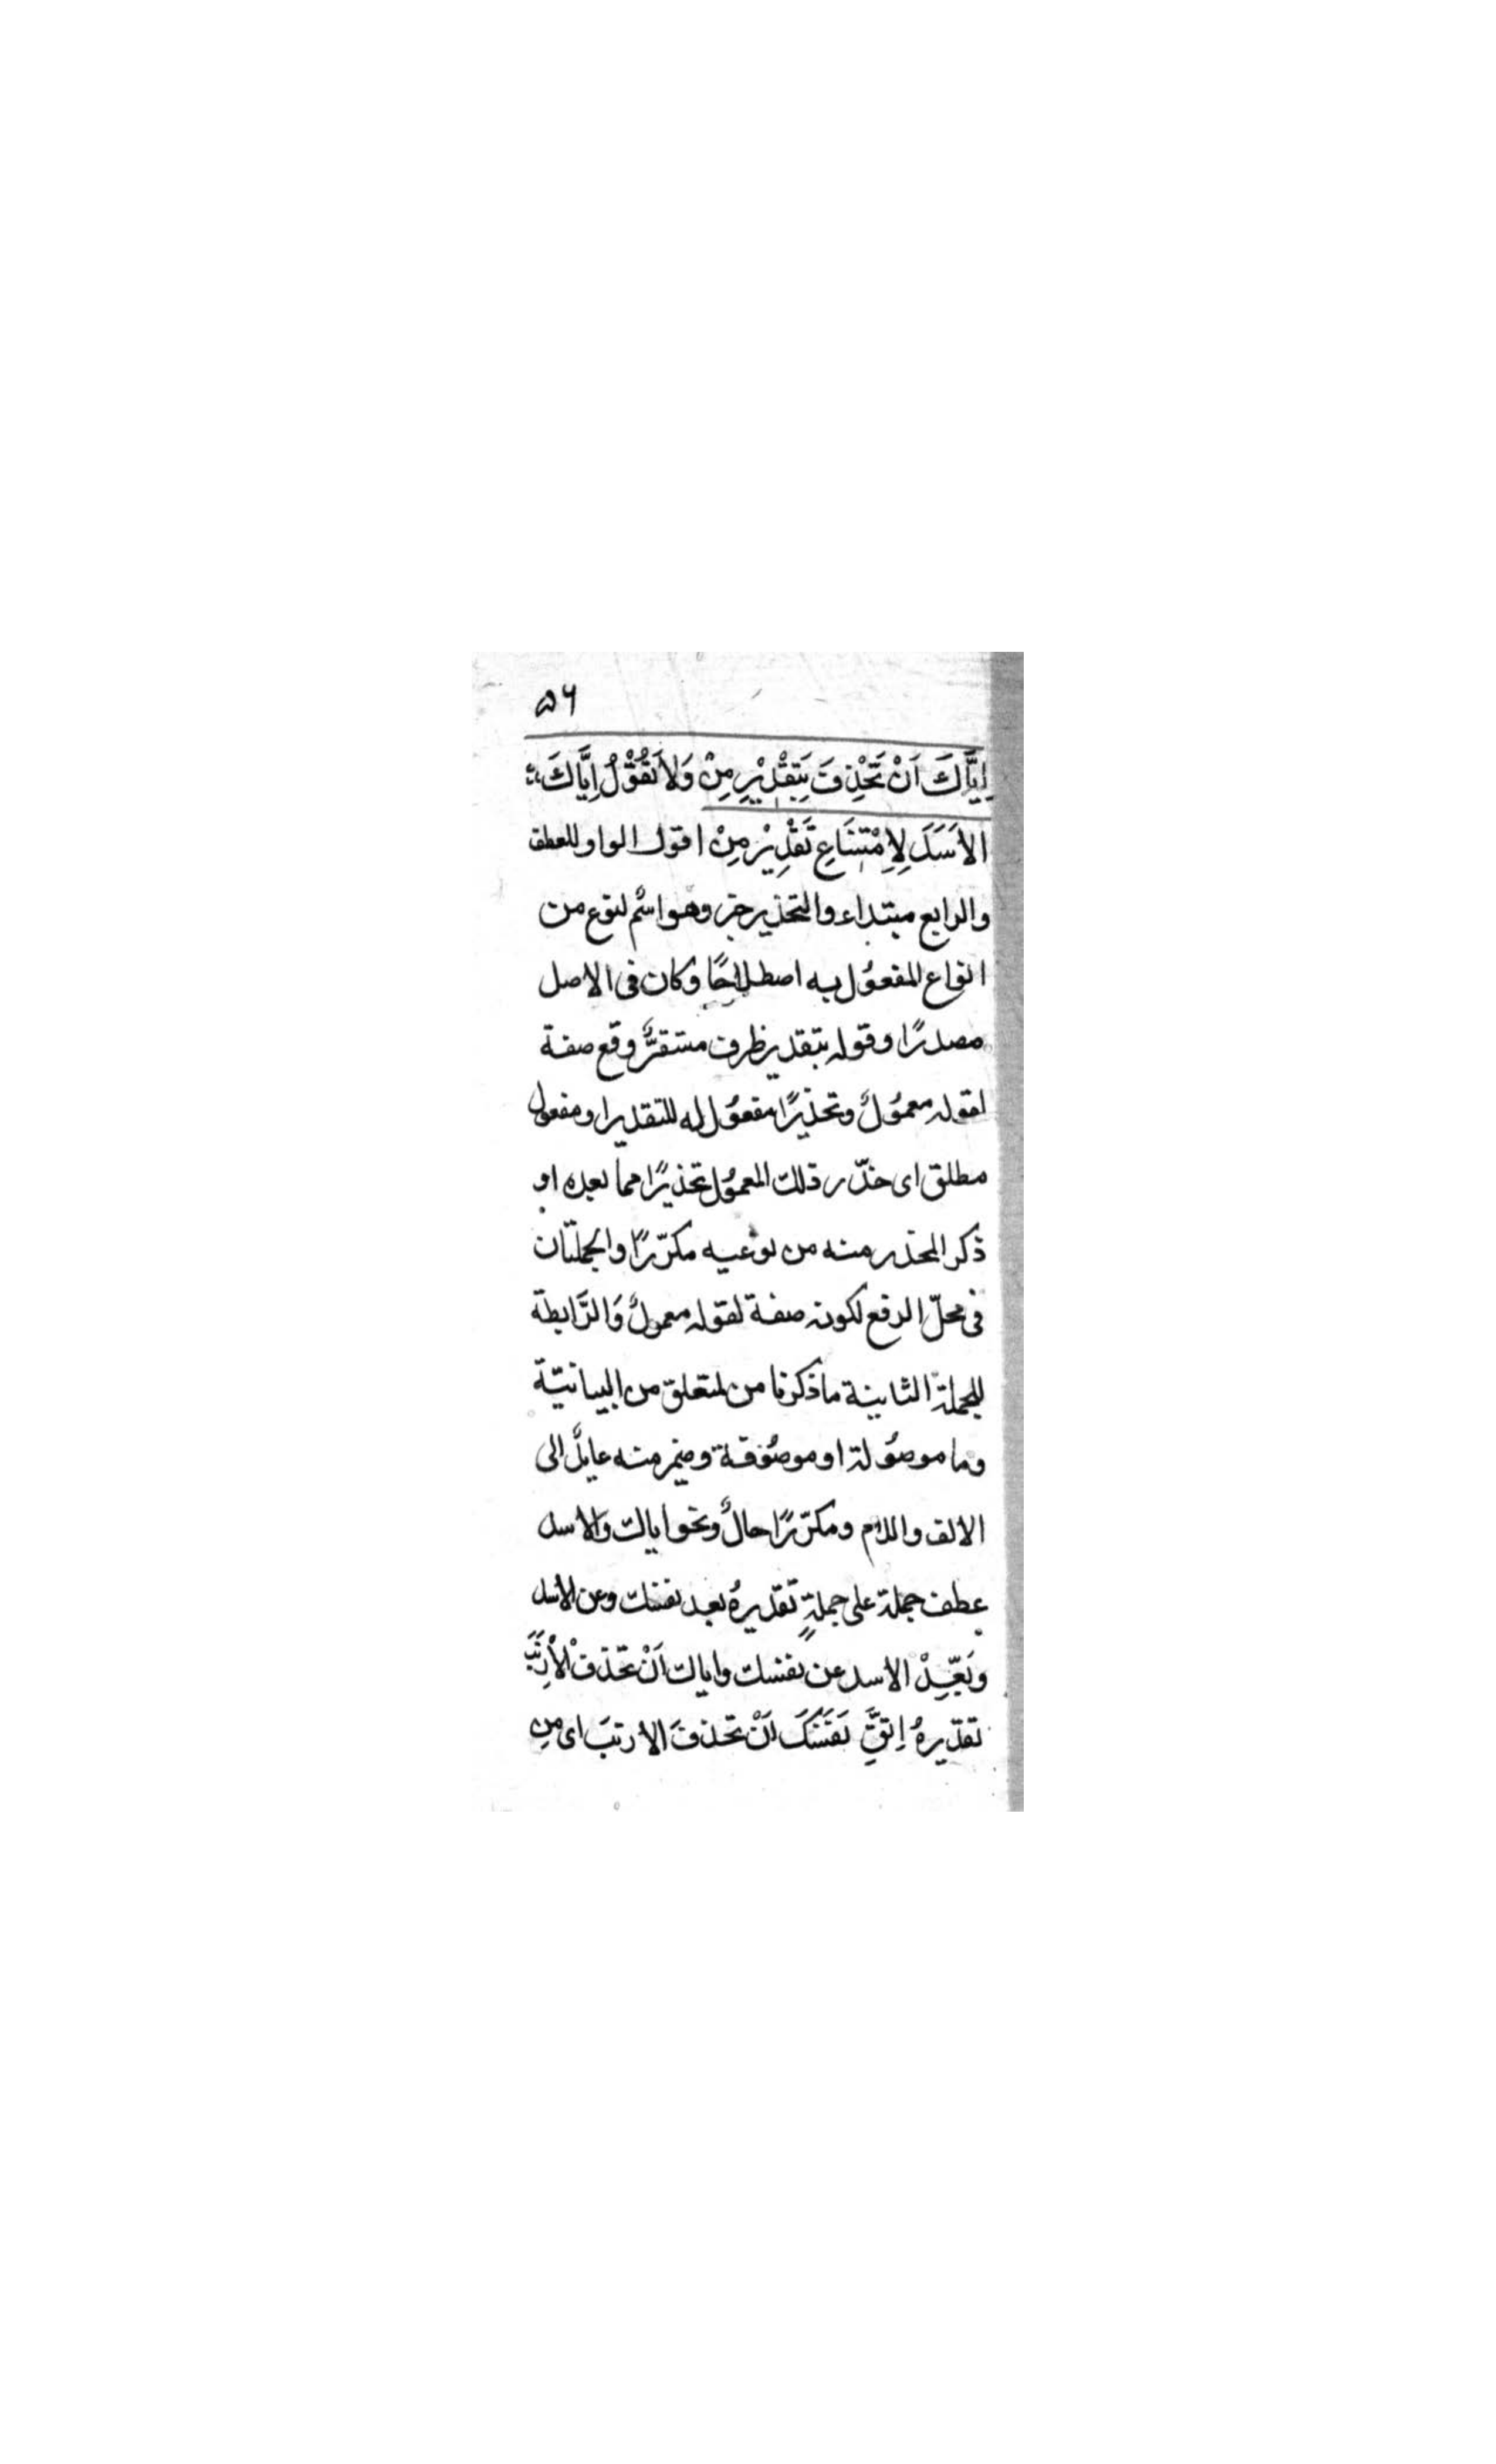 ۵۶
اِيَّاكَ اَنْ تَحْذِفَ بِتَقْدِيْرِ مِنْ وَلَا تَقُوْلُ اِيَّاكَ
الاَسَدَ لِاِمْتِنَاعِ تَقْدِيْرِ مِنْ اقول الواو للعطف
والرابع مبتداء والتحذير خبر وهو اسْم لنوع من
انواع المفعُول به اصطلاحًا وكان فى الاصل
مصدرًا وقوله بتقدير ظرف مستقرٌّ وقع صفة
لقوله معمُولٌ وتحذيرًا مفعُول له للتقدير او مفعول
مطلق اى حذّر ذلك المعمُول تحذيرًا مما بعده او
ذكر المحذر منه من نوعيه مكرّرًا والجملتان
فى محلّ الرفع لكونه صفة لقوله معمولٌ وَالرَّابطة
للجملة الثانية ما ذكرنا من لمتعلق من البيانيّة
وما موصُولة او موصُوفة وضمير منه عايدٌ الى
الالف واللام ومكرّرًا حالٌ ونحو اياك والاسد
عطف جملة على جملةٍ تقديرهُ بعد نفسك وعن الاسد
وبَعِّدْ الاسد عن نفسك واياك اَنْ تحذفْ الْاَرْنَبَ
تقديرهُ اِتَّقِ نَفْسَكَ اَنْ تحذفَ الارنبَ اى مِن